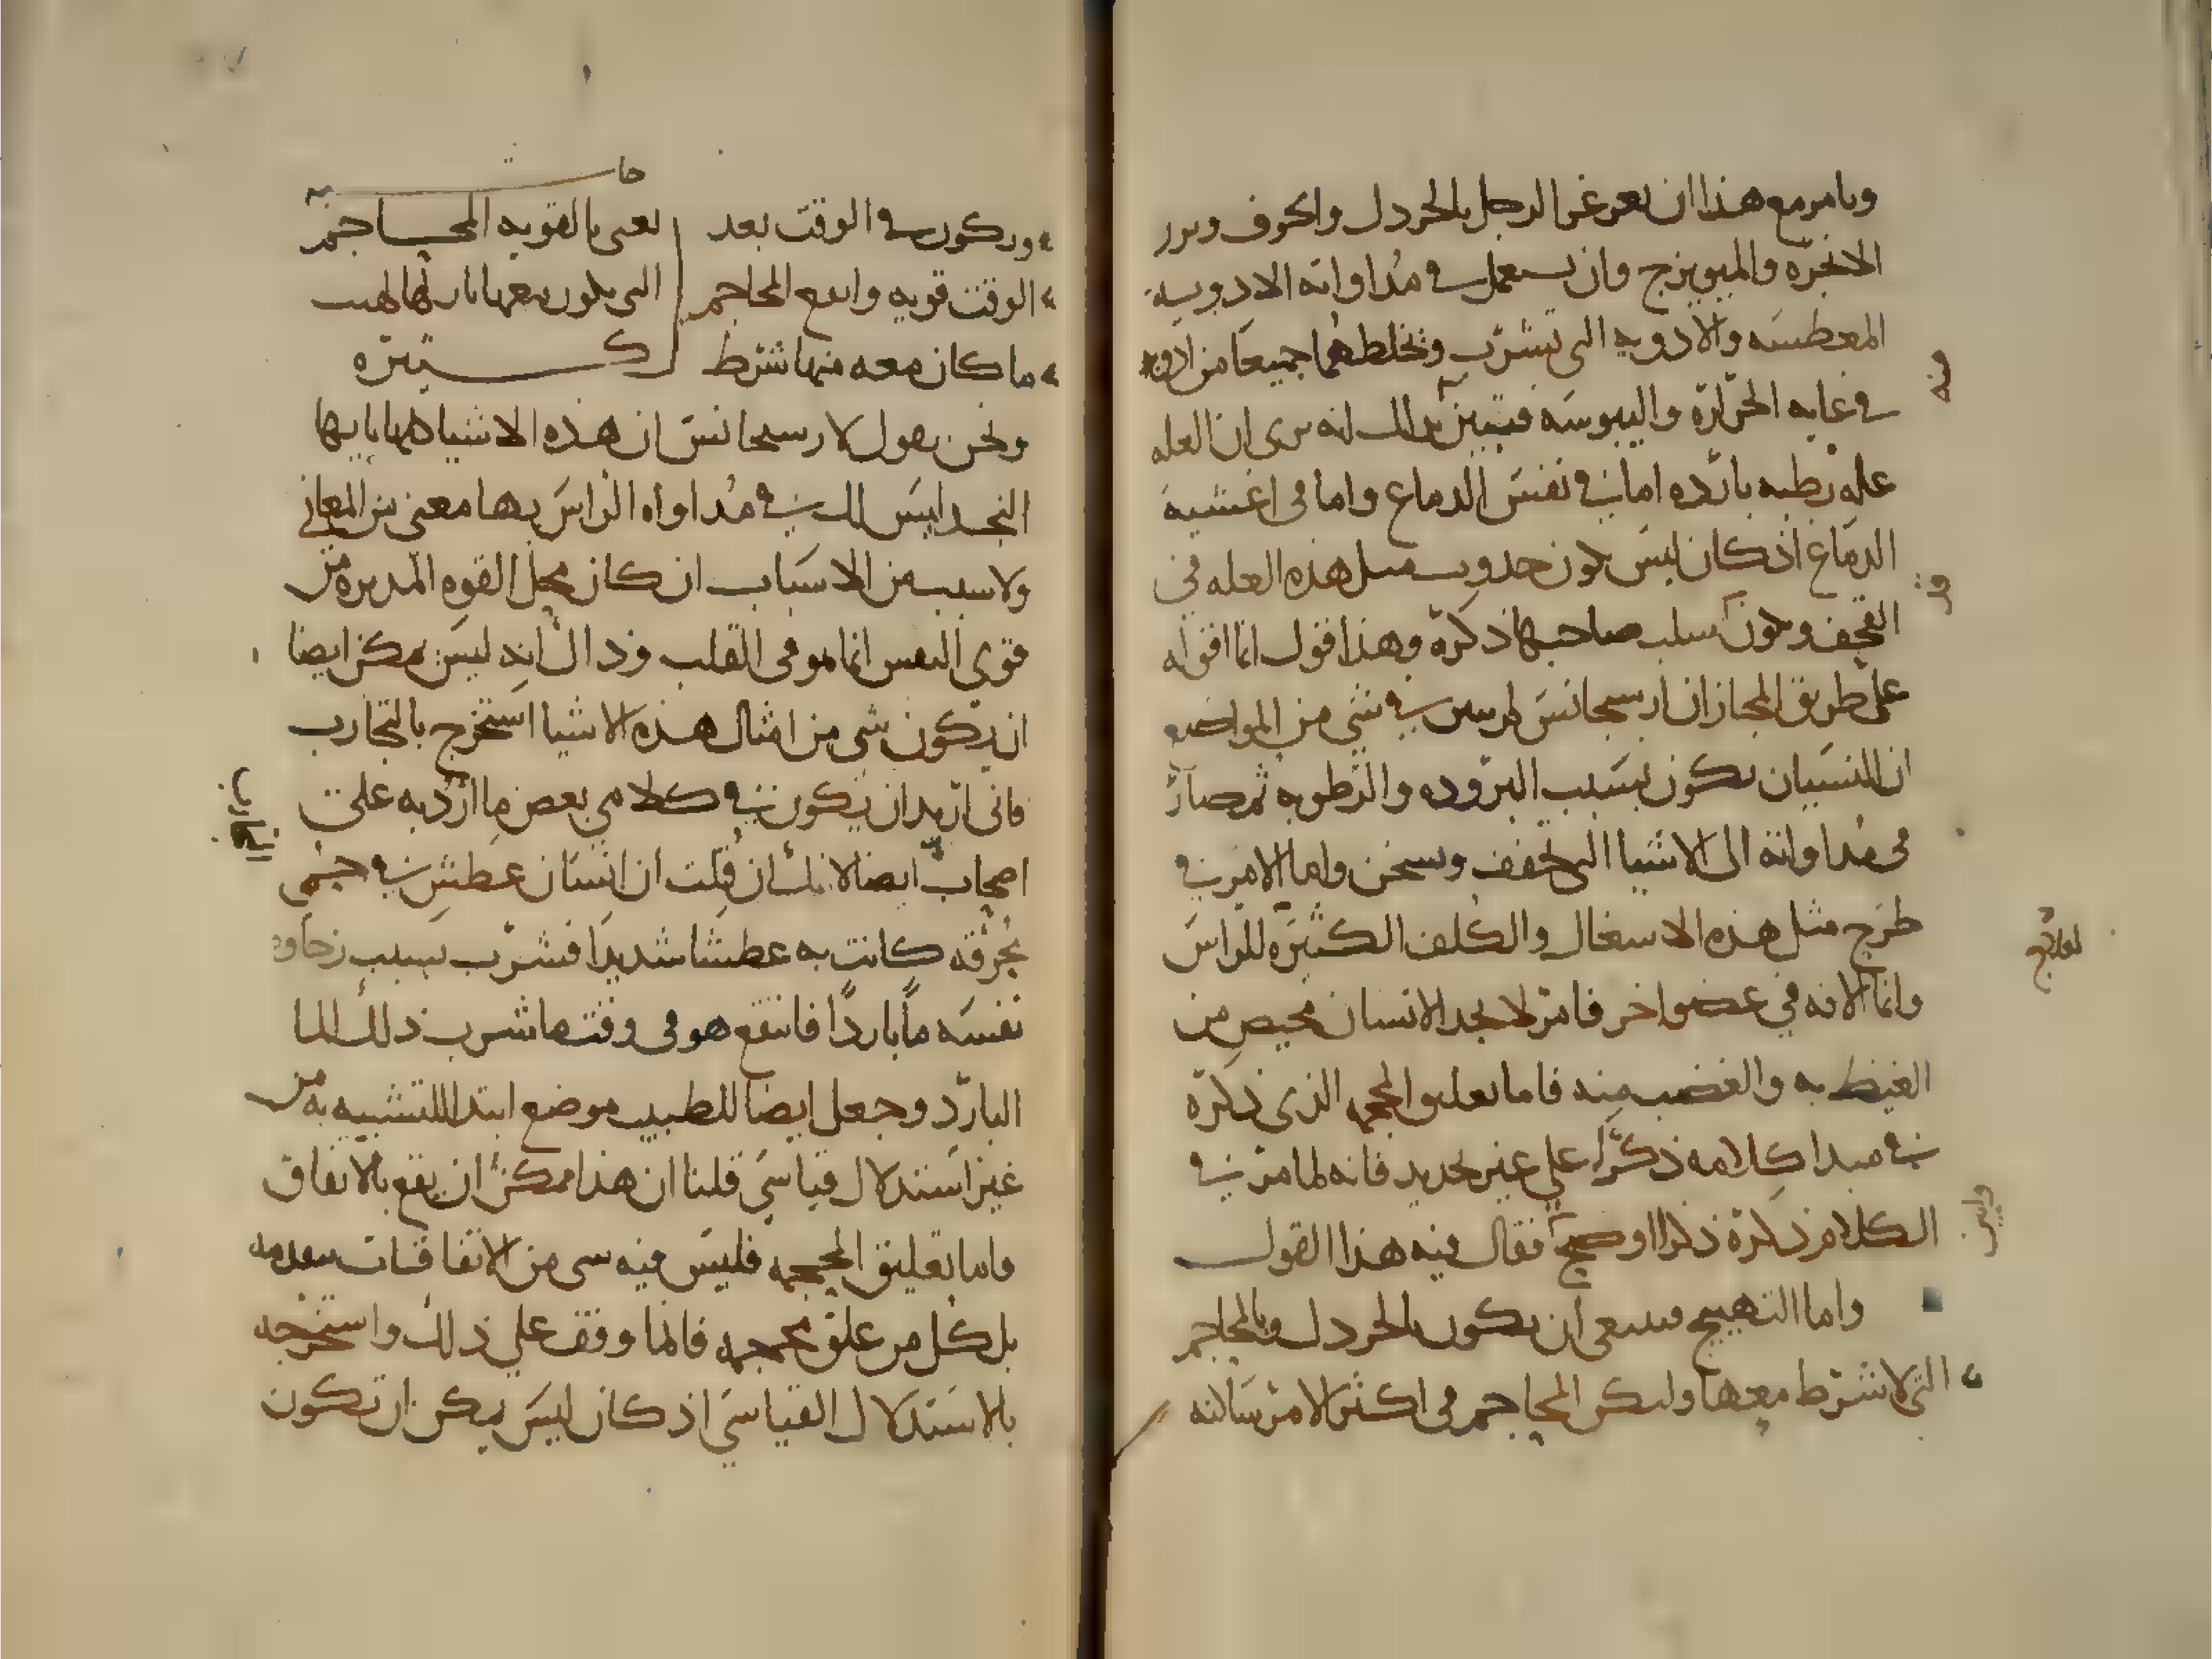 ويامر مع هذا ان يغرغر الرجل بالخردل والحرف وبزر
الانجره والميويزج وان يستعمل في مداواته الادويه
المعطسه والادويه التي تشرب وتخلطهما جميعا من ادويه
في غايه الحراره واليبوسه فتبين بذلك انه يرى ان العله
عله رطبه بارده اما في نفس الدماغ واما في اغشيه
الدماغ اذ كان ليس يكون حدوث مثل هذه العله في
القحف ويكون سلب صاحبها ذكره وهذا قول انما اقوله
على طريق المجاز ان ارسجانس لم يبين في شي من المواضع
ان النسيان يكون بسبب البروده والرطوبه ثم صار
في مداواته الى الاشيا التي تجفف وتسخن واما الامر في
طرح مثل هذه الاسغال والكلف الكثيره للراس
وانما الافه في عضو اخر فامر لا يجد الانسان محيص من
الغيظ به والغضب منه فاما تعليق المحجمه الذي ذكره
في مبدا كلامه ذكرا على غير تحديد فانه لما مر في
الكلام ذكره ذكرا اوضح فقال فيه هذا القول
واما التهييج فينبغي ان يكون بالخردل وبالمحاجم
التي لا شرط معها وليكن المحاجم في اكثر الامر ساكنه
منه
قد
تعالج
وليس
حاشيه
ويكون في الوقت بعد
الوقت قويه وانفع المحاجم
ما كان معه منها شرط
يعني بالقويه المحاجم
التي يكون معها نار لها لهب
كثيره
ونحن نقول لارسجانس ان هذه الاشيا كلها يا ايها
النجد ليس لك في مداواه الراس بها معنى من المعاني
ولا سبب من الاسباب ان كان محل القوه المدبره من
قوى النفس انما هو في القلب وذاك انه ليس يمكن ايضا
ان يكون شي من امثال هذه الاشيا استخرج بالتجارب
فاني اريد ان يكون في كلامي بعض ما ارد به على
اصحاب ايضا لانك ان قلت ان انسان عطش في حمى
محرقه كانت به عطشا شديدا فشرب بسبب رخاوه
نفسه ماً بارداً فانتفع هو في وقت ما شرب ذلك الما
البارد وجعل ايضا للطبيب موضع ابتدا للتشبيه به من
غير استدلال قياسي قلنا ان هذا ممكن ان يقع بالاتفاق
واما تعليق المحجمه فليس فيه شي من الاتفاقات يتقدمه
بل كل من علق محجمه فانما وقف على ذلك واستخرجه
بالاستدلال القياسي اذ كان ليس يمكن ان تكون